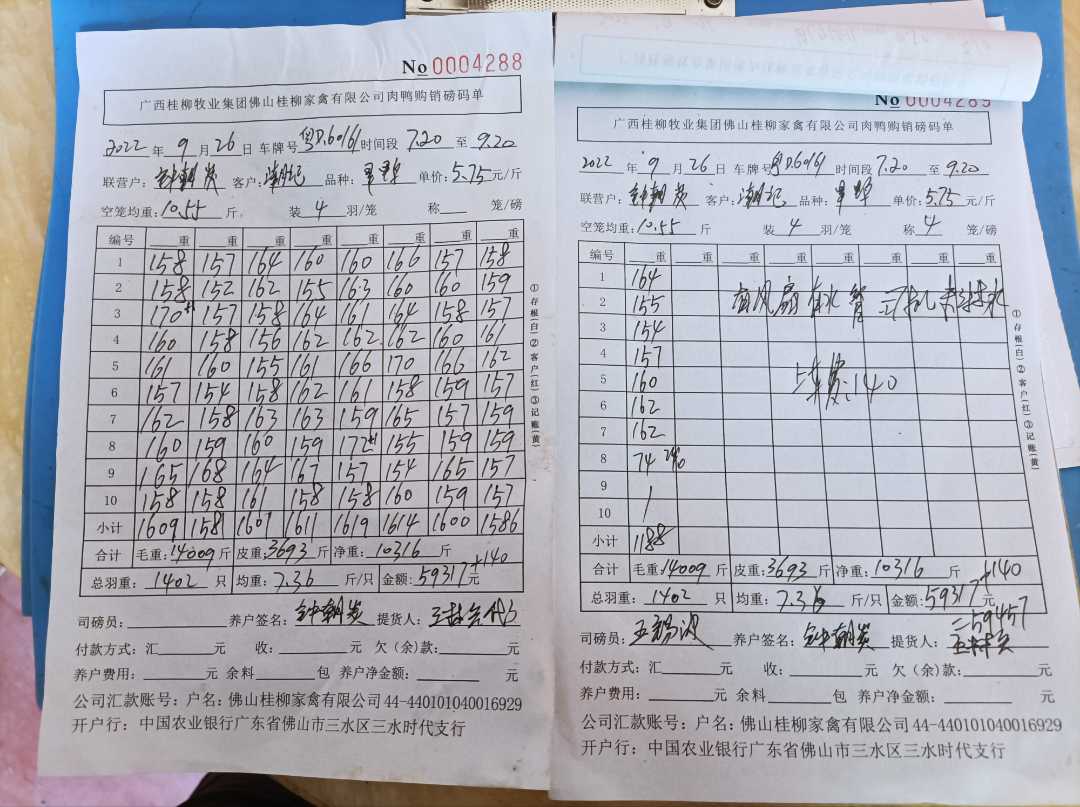 No 0004288
广西桂柳牧业集团佛山桂柳家禽有限公司肉鸭购销磅码单
2022年9月26日 车牌号粤D.60161 时间段7.20至9.20
联营户: 客户:潮记 品种: 单价:5.75元/斤
空笼均重:10.55斤. 装4羽/笼 称 笼/磅
编号 重 重 重 重 重 重 重 重
1 158 157 164 160 160 166 157 158
2 158 152 162 155 163 160 160 159
3 170 157 158 164 161 164 158 157
4 160 158 156 162 162 162 160 161
5 161 160 155 161 166 170 166 162
6 157 154 158 162 161 158 159 157
7 162 158 163 163 159 165 157 159
8 160 159 160 159 172 155 159 159
9 165 168 164 167 157 154 165 157
10 158 158 161 158 158 160 159 157
小计 1609 1581 1601 1611 1619 1614 1600 1586
合计 毛重:14009斤 皮重:3693斤 净重:10316斤
总羽重:1402只 均重:7.36斤/只 金额:59317元 +140
司磅员: 养户签名:钟朝英 提货人:
付款方式:汇 元 收: 元 欠(余)款: 元
养户费用: 元 余料 包 养户净金额: 元
公司汇款账号:户名:佛山桂柳家禽有限公司44-440101040016929
开户行:中国农业银行广东省佛山市三水区三水时代支行
①存根(白)②客户(红)③记账(黄)
No 0004289
广西桂柳牧业集团佛山桂柳家禽有限公司肉鸭购销磅码单
2022年9月26日 车牌号粤D.60161 时间段7.20至9.20
联营户: 客户:潮记 品种: 单价:5.75元/斤
空笼均重:10.55斤 装4羽/笼 称4笼/磅
编号 重 重 重 重 重 重 重 重
1 164
2 155 有风扇有水管
3 154
4 157
5 160 140
6 162
7 162
8 74
9
10
小计 1188
合计 毛重:14009斤 皮重:3693斤 净重:10316斤
总羽重:1402只 均重:7.36斤/只 金额:59317元 +140
=59457
司磅员:王锡波 养户签名:钟朝英 提货人:
付款方式:汇 元 收: 元 欠(余)款: 元
养户费用: 元 余料 包 养户净金额: 元
公司汇款账号:户名:佛山桂柳家禽有限公司44-440101040016929
开户行:中国农业银行广东省佛山市三水区三水时代支行
①存根(白)②客户(红)③记账(黄)